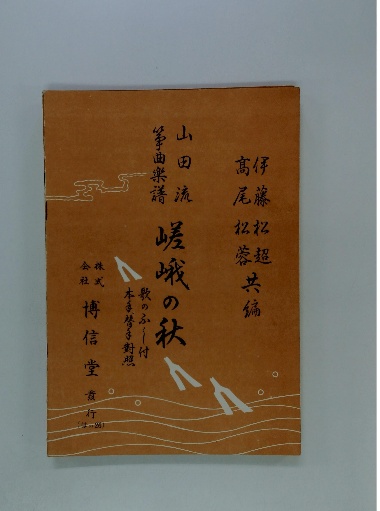 伊藤松超
髙尾松蓉
共編
山田流
箏曲楽譜
嵯峨の秋
歌のふし付
本手替手對照
株式
会社
博信堂
發行